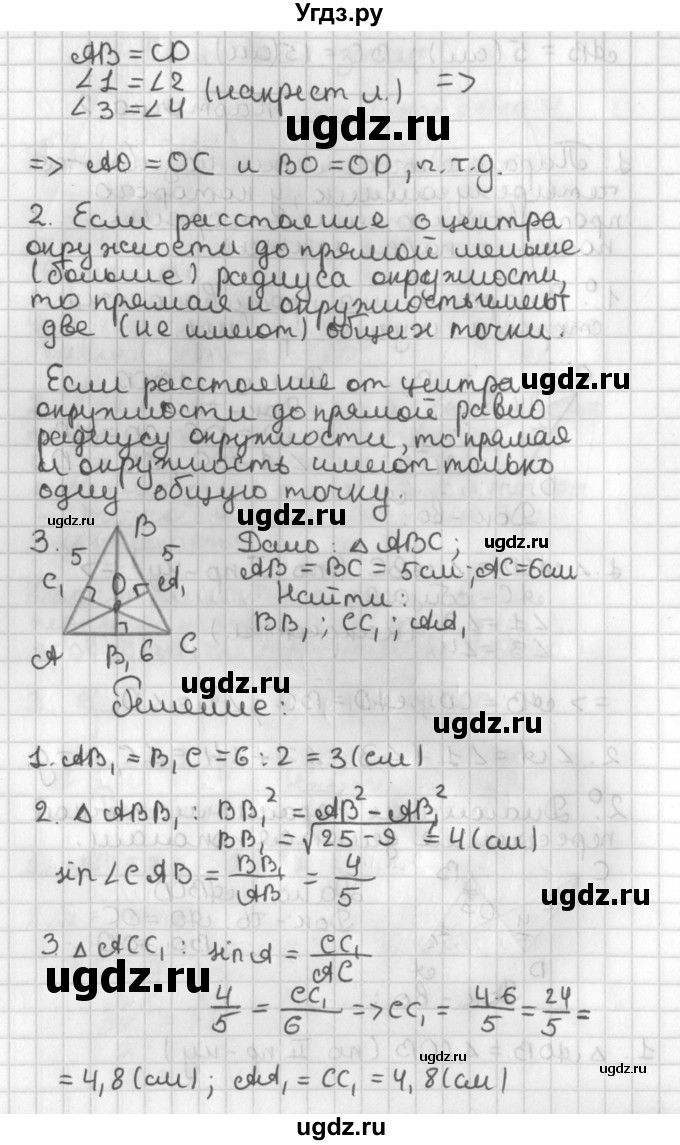 Угдз.ру
AB = CD
∠1 = ∠2 (накрест л.) =>
∠3 = ∠4
ugdz.ru
=> AO = OC и BO = OD, ч.т.д.
2. Если расстояние о центра
окружности до прямой меньше
(больше) радиуса окружности,
то прямая и окружность имеют
две (не имеют) общих точки.
Если расстояние от центра
ugdz.ru
окружности до прямой равно
радиусу окружности, то прямая
и окружность имеют только
одну общую точку.
ugdz.ru
ugdz.ru
3. B Дано: △ ABC;
ugdz.ru
5 5 AB = BC = 5 см; AC = 6 см
C₁ O A₁ Найти:
BB₁; CC₁; AA₁
A B₁ 6 C
ugdz.ru
ugdz.ru
Решение:
ugdz.ru
1. AB₁ = B₁C = 6 : 2 = 3 (см)
2. △ ABB₁ : BB₁² = AB² - AB₁²
BB₁ = √25 - 9 = 4 (см)
sin∠CAB = BB₁/AB = 4/5
ugdz.ru
3 △ ACC₁ : sin A = CC₁/AC
ugdz.ru
4/5 = CC₁/6 => CC₁ = 4·6/5 = 24/5 =
ugdz.ru
ugdz.ru
= 4,8 (см); AA₁ = CC₁ = 4,8 (см)
ugdz.ru